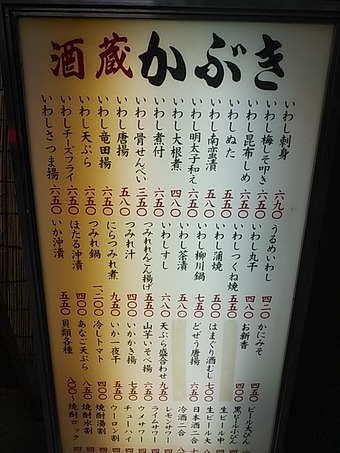 酒蔵かぶき
いわし刺身 六九〇
いわし梅しそ叩き 六五〇
いわし昆布しめ 六五〇
いわしぬた 五五〇
いわし南蛮漬 五八〇
いわし明太子和え 六五〇
いわし大根煮 四八〇
いわし煮付 六五〇
いわし骨せんべい 三五〇
いわし唐揚 五八〇
いわし竜田揚 六五〇
いわし天ぷら 六五〇
いわしチーズフライ 六五〇
いわしさつま揚 六五〇
うるめいわし
いわし丸干
いわしつくね焼
いわし蒲焼
いわし柳川鍋 七五〇
いわし茶漬 五五〇
いわしすし 六八〇
つみれれんこん揚げ 六五〇
つみれ汁 五五〇
にらつみれ煮 九五〇
つみれ鍋 一、二〇〇
ほたる沖漬 五五〇
いか沖漬 五五〇
かにみそ
お新香
はまぐり酒むし 七〇〇
どぜう唐揚 五五〇
天ぷら盛合わせ 九五〇
山芋いそべ揚 六五〇
いかかき揚
いか一夜干 五五〇
冷しトマト 四〇〇
あなご天ぷら 八五〇
貝類各種
ビール大びん
黒ビール小びん
生ビール中
生ビール大
日本酒二合
冷酒二合
レモンサワー
ライムサワー
ウメサワー
チューハイ
ウーロン割
焼酎湯割
焼酎水割
焼酎ロック